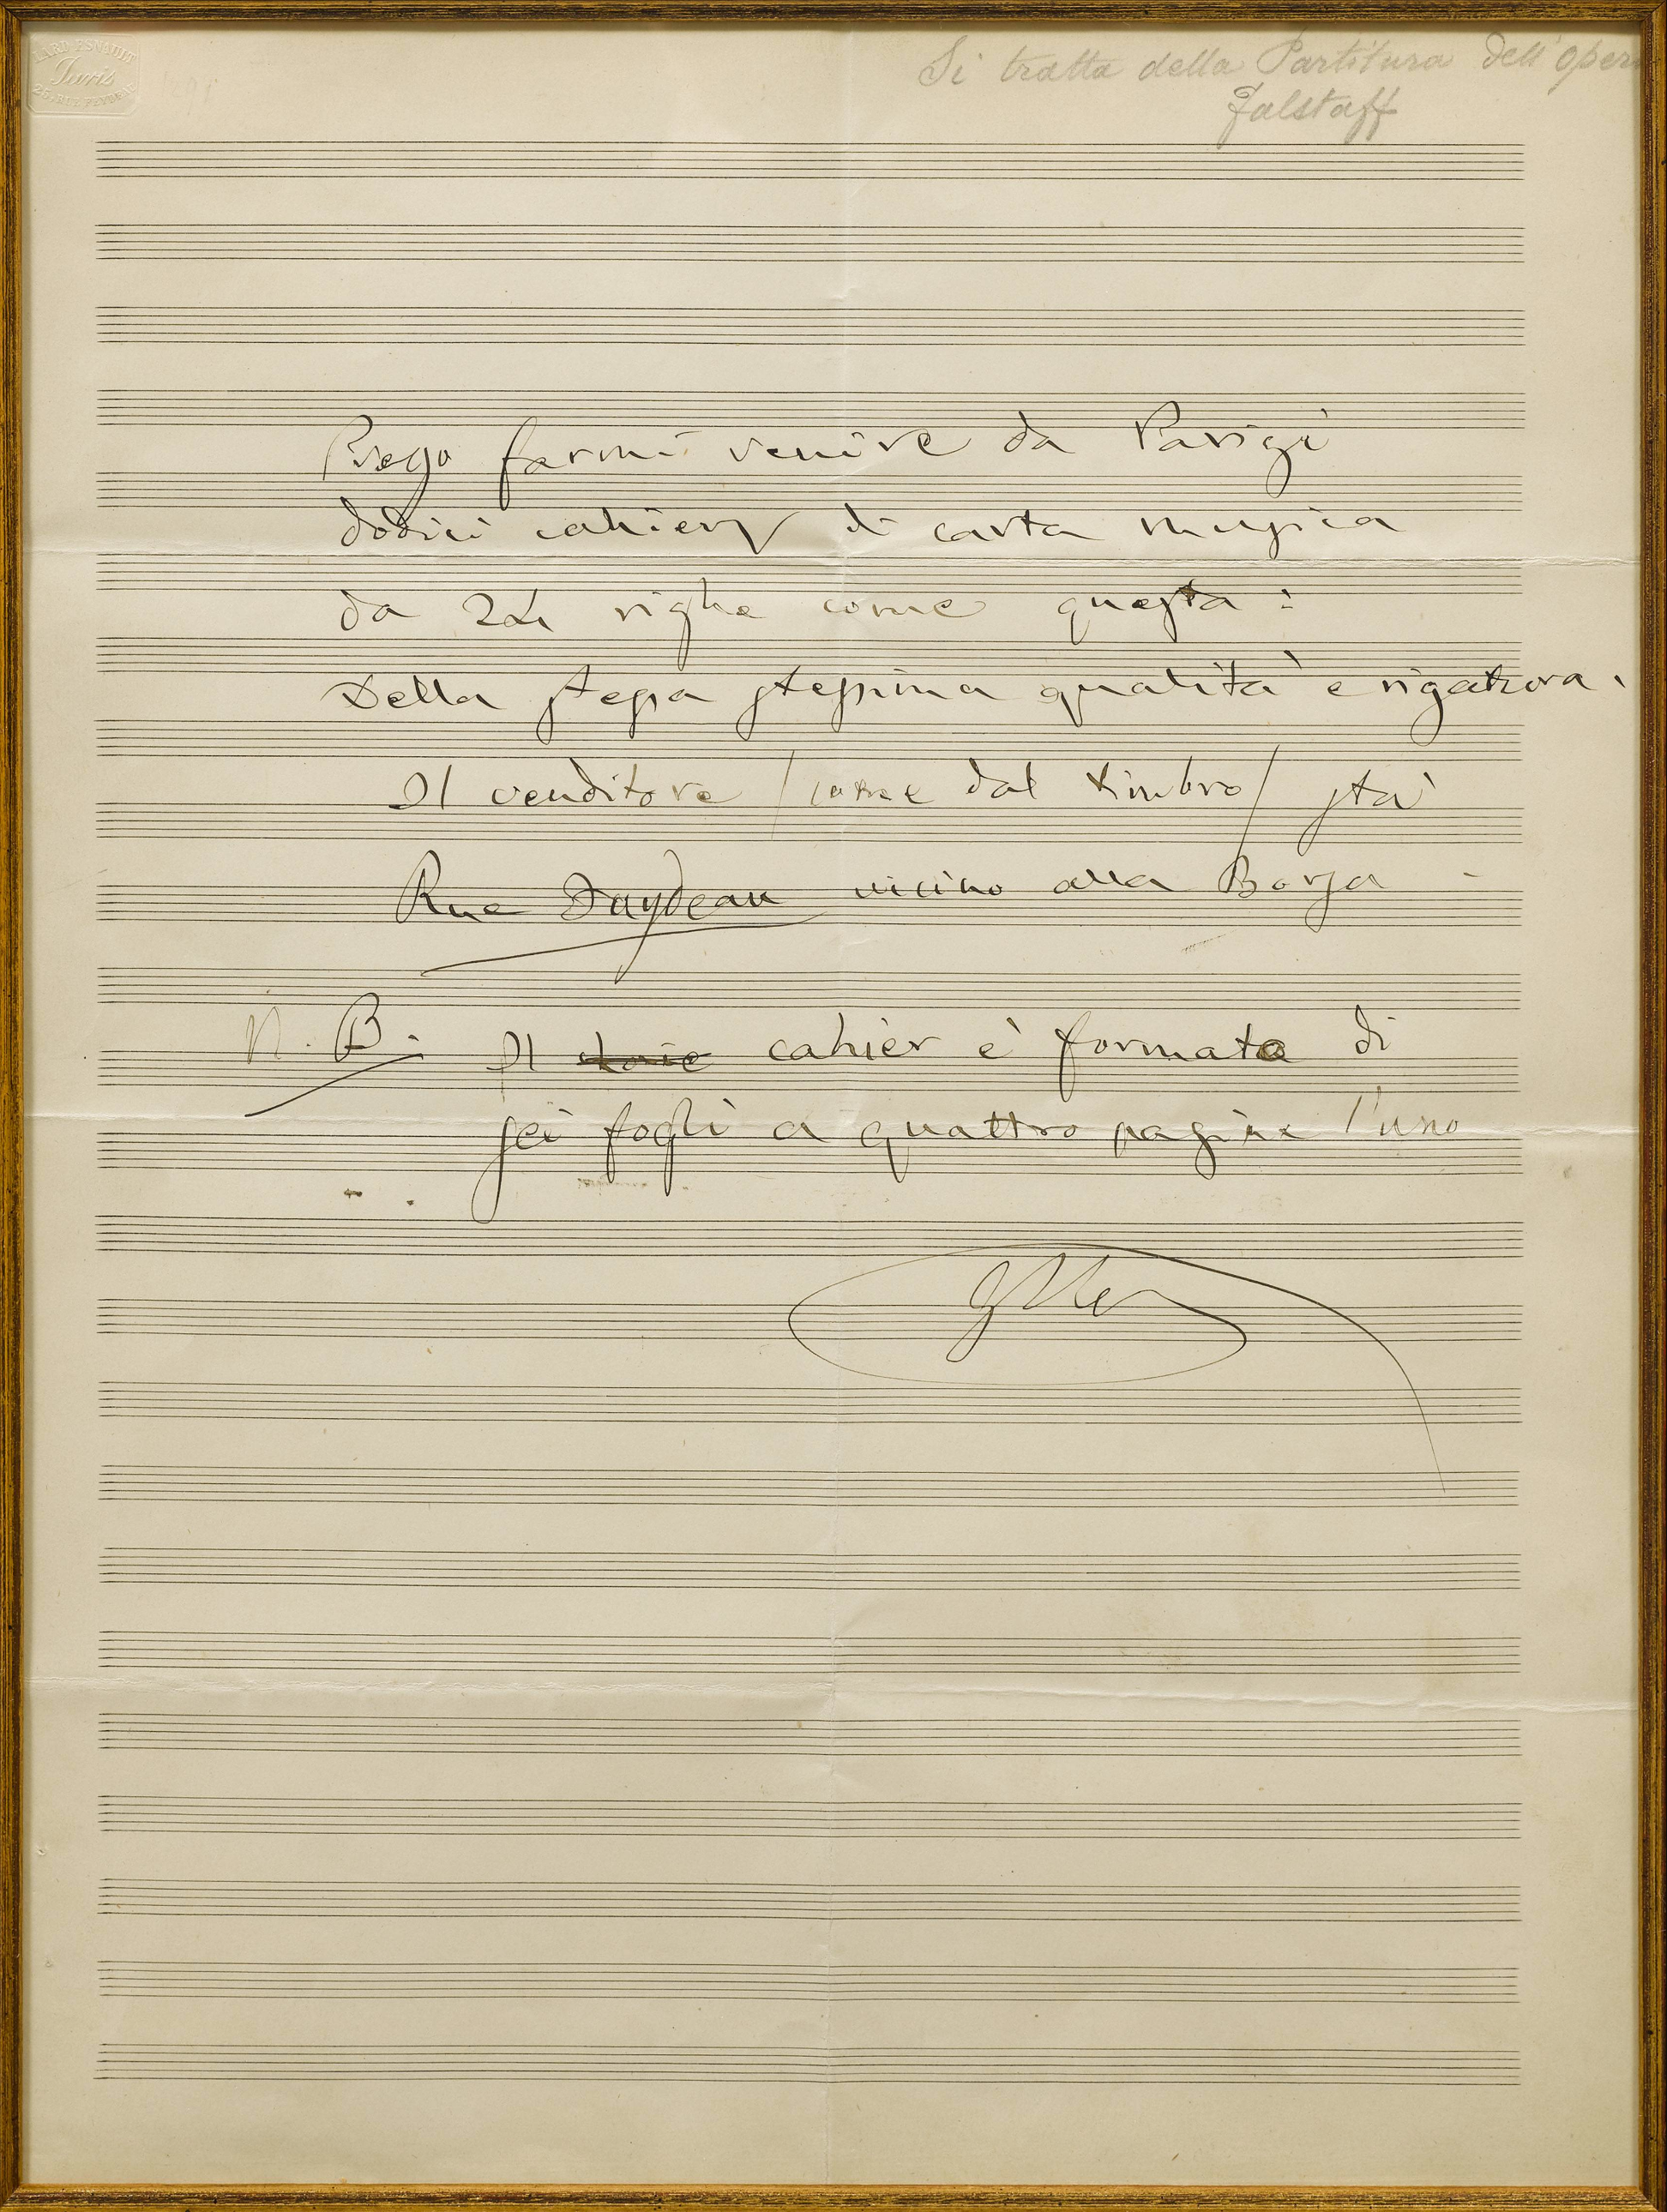 LARD ESNAULT
Paris
25, RUE FEYDEAU
Si tratta della Partitura dell'Oper
Falstaff
Prego farmi venire da Parigi
dodici cahiers di carta musica
da 24 righe come questa:
Della stessa stessissima qualità e rigatura.
Il venditore / come dal timbro / sta
Rue Faydeau vicino alla Borsa
N. B. Il cahier è formato di
sei fogli a quattro pagine l'uno
GVer